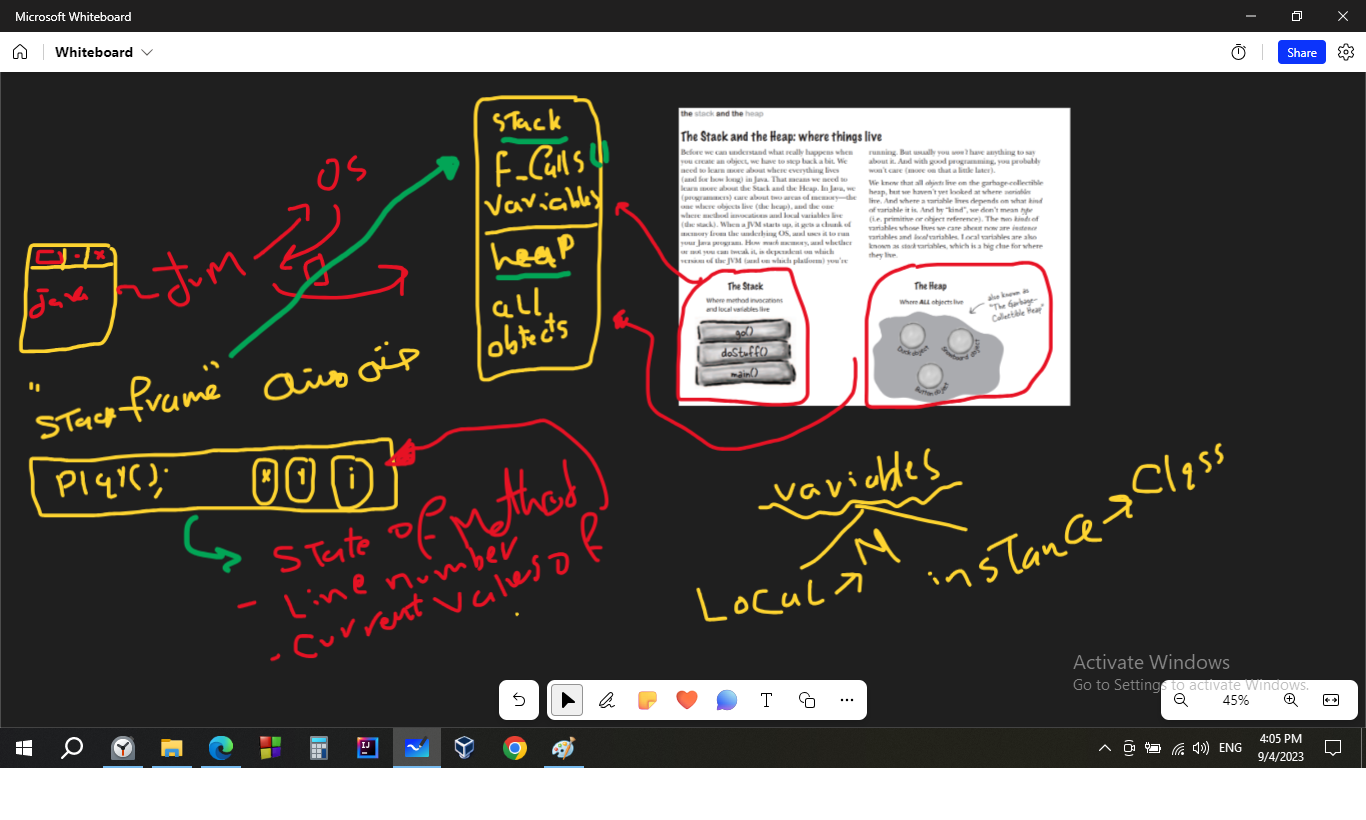 Microsoft Whiteboard
Whiteboard
Share
OS
JVM
Java
Stack
F_Calls
variables
heap
all
objects
the stack and the heap
The Stack and the Heap: where things live
Before we can understand what really happens when
you create an object, we have to step back a bit. We
need to learn more about where everything lives
(and for how long) in Java. That means we need to
learn more about the Stack and the Heap. In Java, we
(programmers) care about two areas of memory—the
one where objects live (the heap), and the one
where method invocations and local variables live
(the stack). When a JVM starts up, it gets a chunk of
memory from the underlying OS, and uses it to run
your Java program. How much memory, and whether
or not you can tweak it, is dependent on which
version of the JVM (and on which platform) you're
running. But usually you won't have anything to say
about it. And with good programming, you probably
won't care (more on that a little later).
We know that all objects live on the garbage-collectible
heap, but we haven't yet looked at where variables
live. And where a variable lives depends on what kind
of variable it is. And by "kind", we don't mean type
(i.e. primitive or object reference). The two kinds of
variables whose lives we care about now are instance
variables and local variables. Local variables are also
known as stack variables, which is a big clue for where
they live.
The Stack
Where method invocations
and local variables live
go()
doStuff()
main()
The Heap
Where ALL objects live
also known as
"The Garbage-
Collectible Heap"
Duck object
Snowboard object
Button object
"Stack frame"
Play();
x
y
i
State of Method
- Line number
- Current values of
variables
Local
M
instance
Class
Activate Windows
Go to Settings to activate Windows.
45%
ENG
4:05 PM
9/4/2023